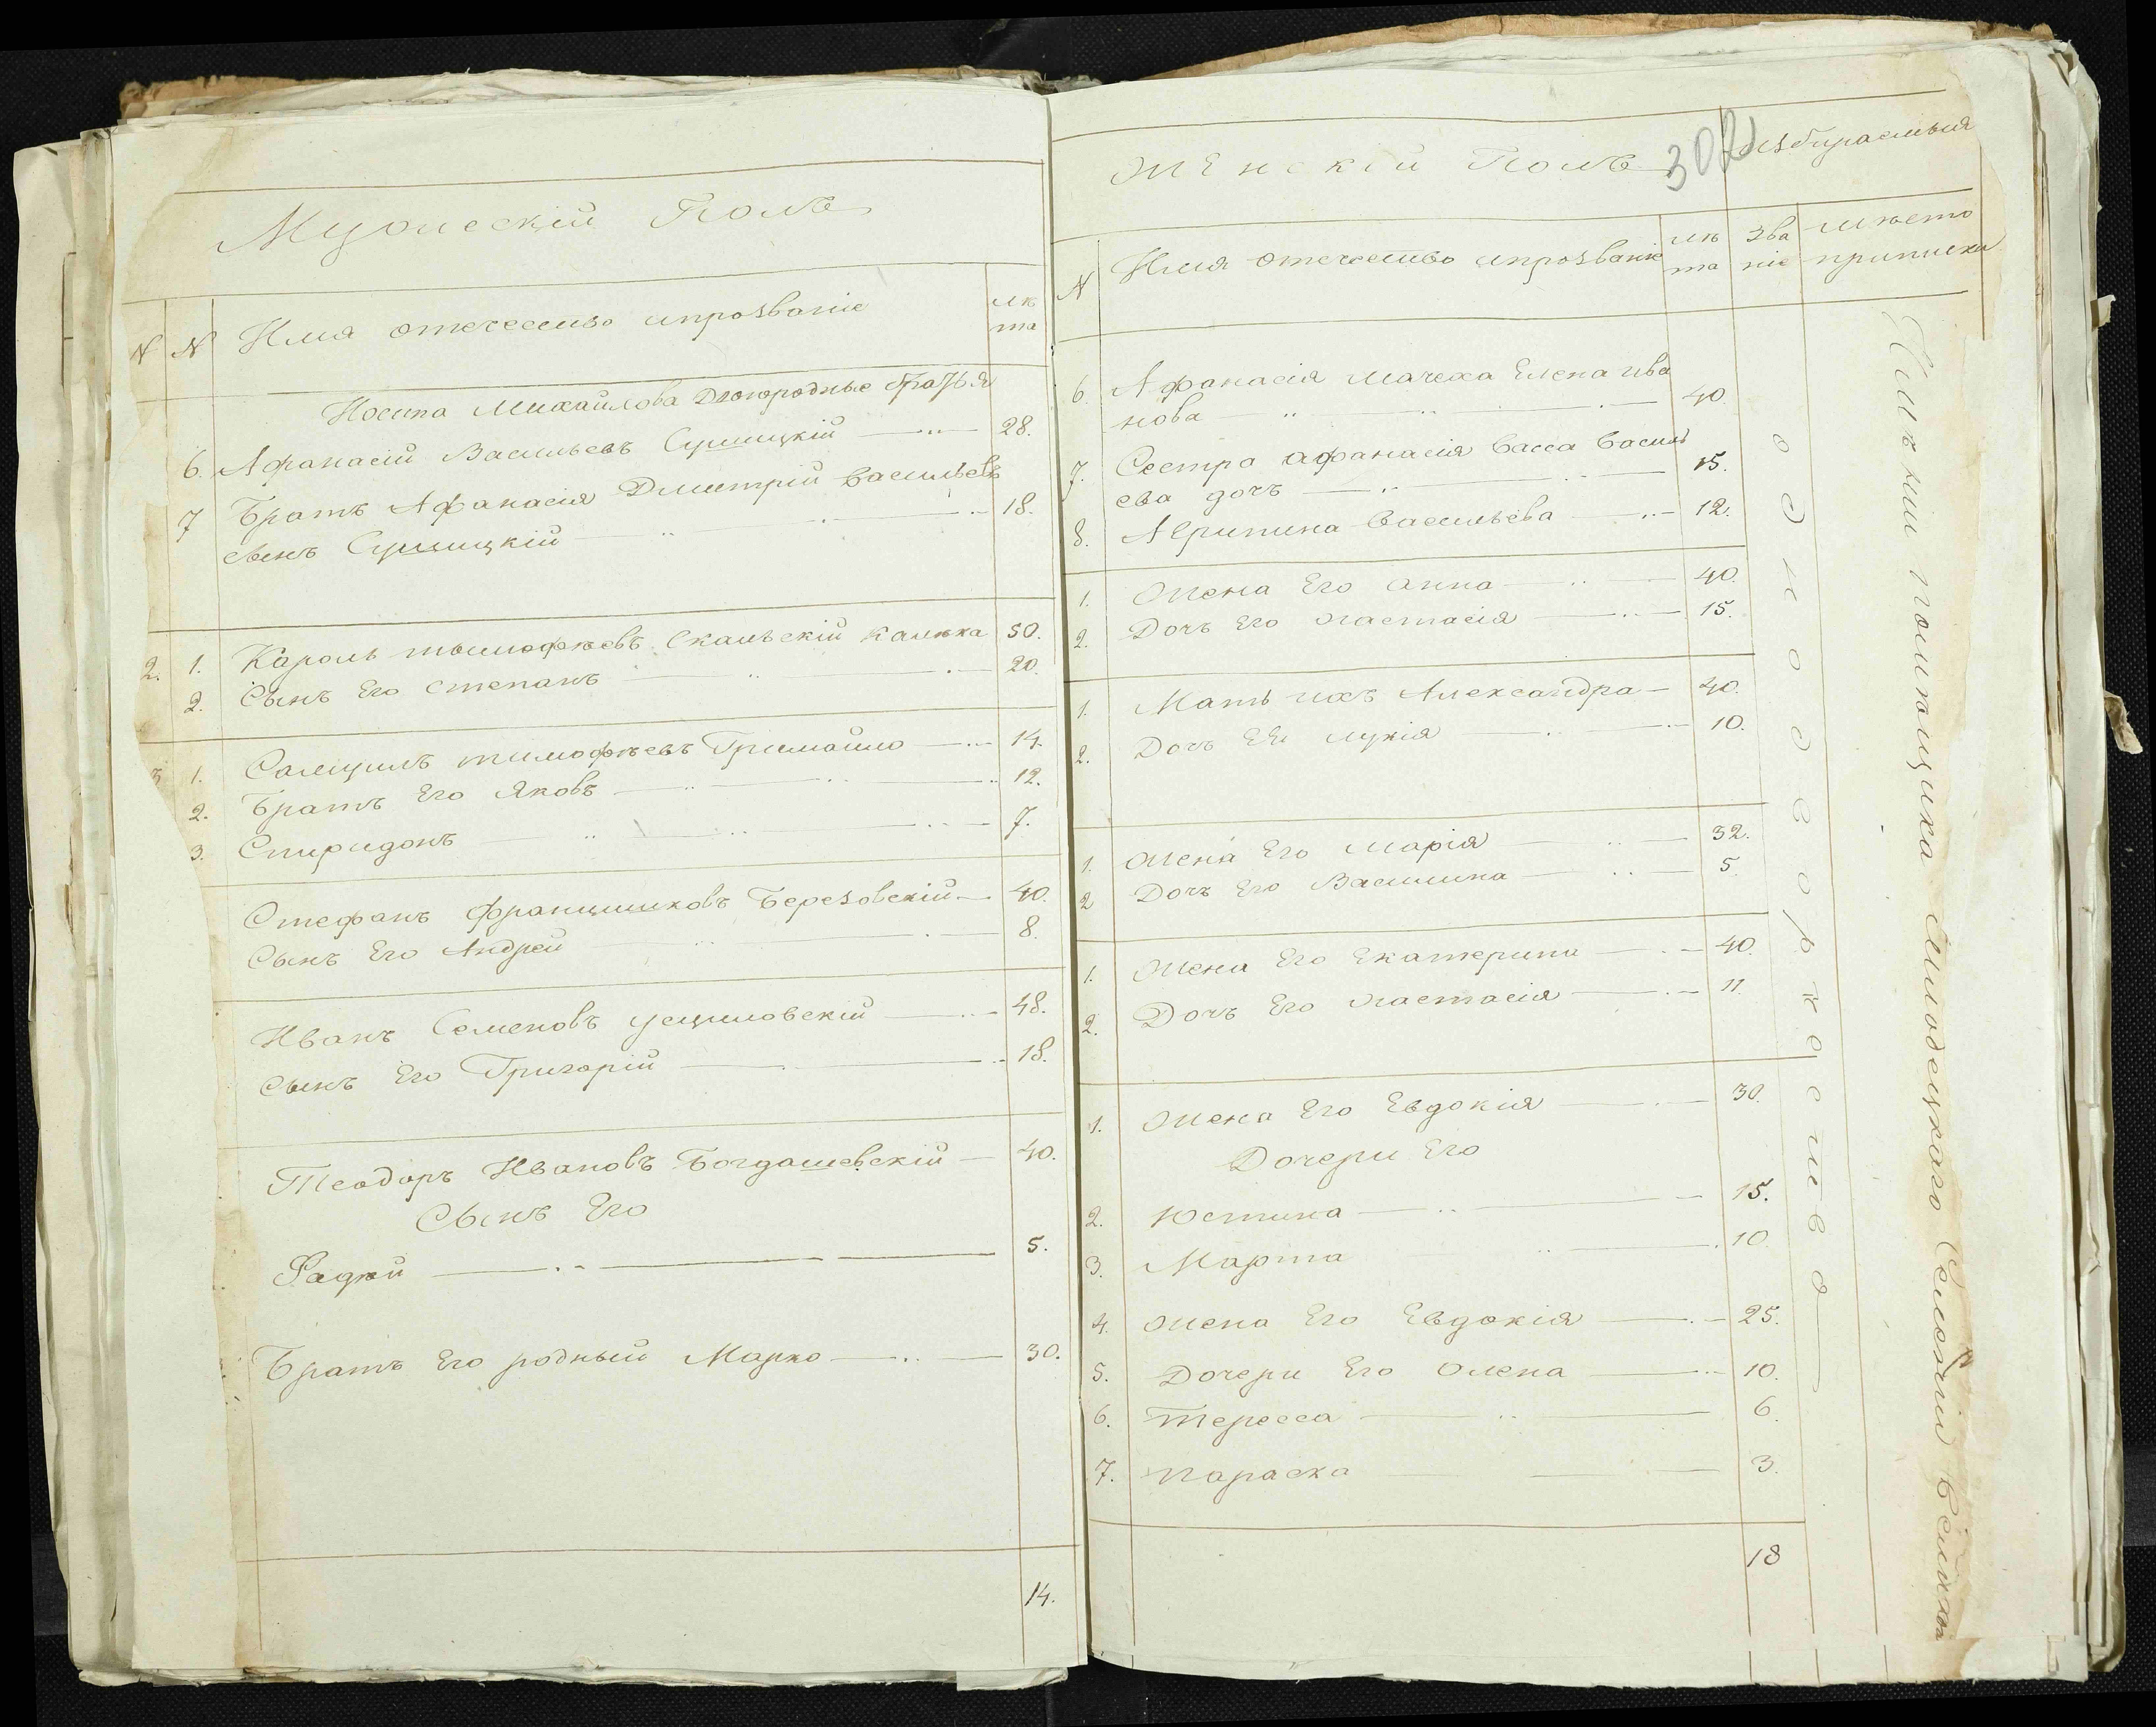 Мужескій Полъ
N N Имя отечество ипрозваніе лѣ
та
Иосипа Михайлова Двоюродные братья
6. Афанасій Васильевъ Сушицкій 28.
7 Братъ Афанасія Дмитрій Васильевъ
сынъ Сушицкій 18.
2. 1. Кароль тымофѣевъ Скальскій Калѣка 50.
2. Сынъ Его Степанъ 20.
3 1. Самуилъ тимофѣевъ Гримайло 14.
2. Братъ Его Яковъ 12.
3. Спиридонъ 7.
Стефанъ Францишковъ Березовскій 40.
Сынъ Его Андрей 8.
Иванъ Семеновъ 48.
Сынъ Его Григорій 18.
Теодоръ Ивановъ Богдашевскій 40.
Сынъ Его
Фадѣй 5.
Братъ Его родный Марко 30.
14.
302
Женскій Полъ Избираемыя
N Имя отечество ипрозваніе лѣ
та Зва
ніе мѣсто
приписки
6. Афанасія мачеха Елена ива
нова 40.
7. Сестра афанасія Васса Василь
ева дочъ 15.
8. Агрипина Васильева 12.
1. Жена Его анна 40.
2. Дочъ Его Настасія 15.
1. Мать ихъ Александра 40.
2. Дочъ Еи лукія 10.
1. Жена Его Марія 32.
2 Дочъ Его Василина 5.
1. Жена Его Екатерина 40.
2. Дочъ Его Настасія 11
1. Жена Его Евдокія 30.
Дочери Его
2. Юстина 15.
3. Марта 10
4. Жена Его Евдокія 25.
5. Дочери Его Олена 10.
6. Тересса 6.
7. параска 3.
18
однодворческаго
помѣщика